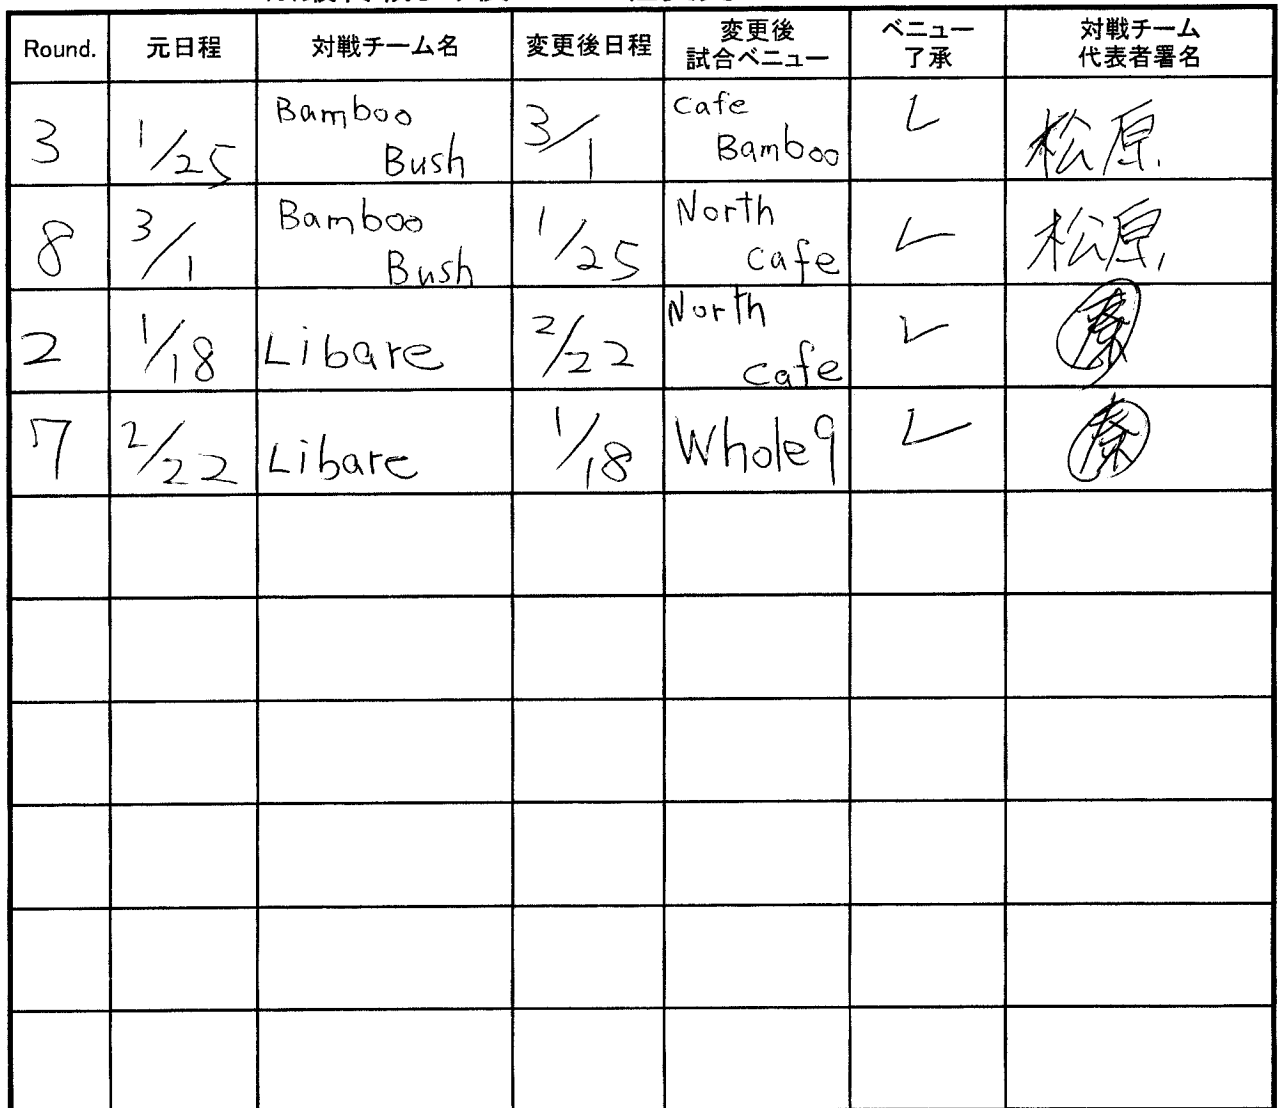 Round. 元日程 対戦チーム名 変更後日程 変更後 試合ベニュー ベニュー 了承 対戦チーム 代表者署名
3 1/25 Bamboo Bush 3/1 Cafe Bamboo レ 松原
8 3/1 Bamboo Bush 1/25 North cafe レ 松原
2 1/18 Libare 2/22 North cafe レ
7 2/22 Libare 1/18 Whole9 レ